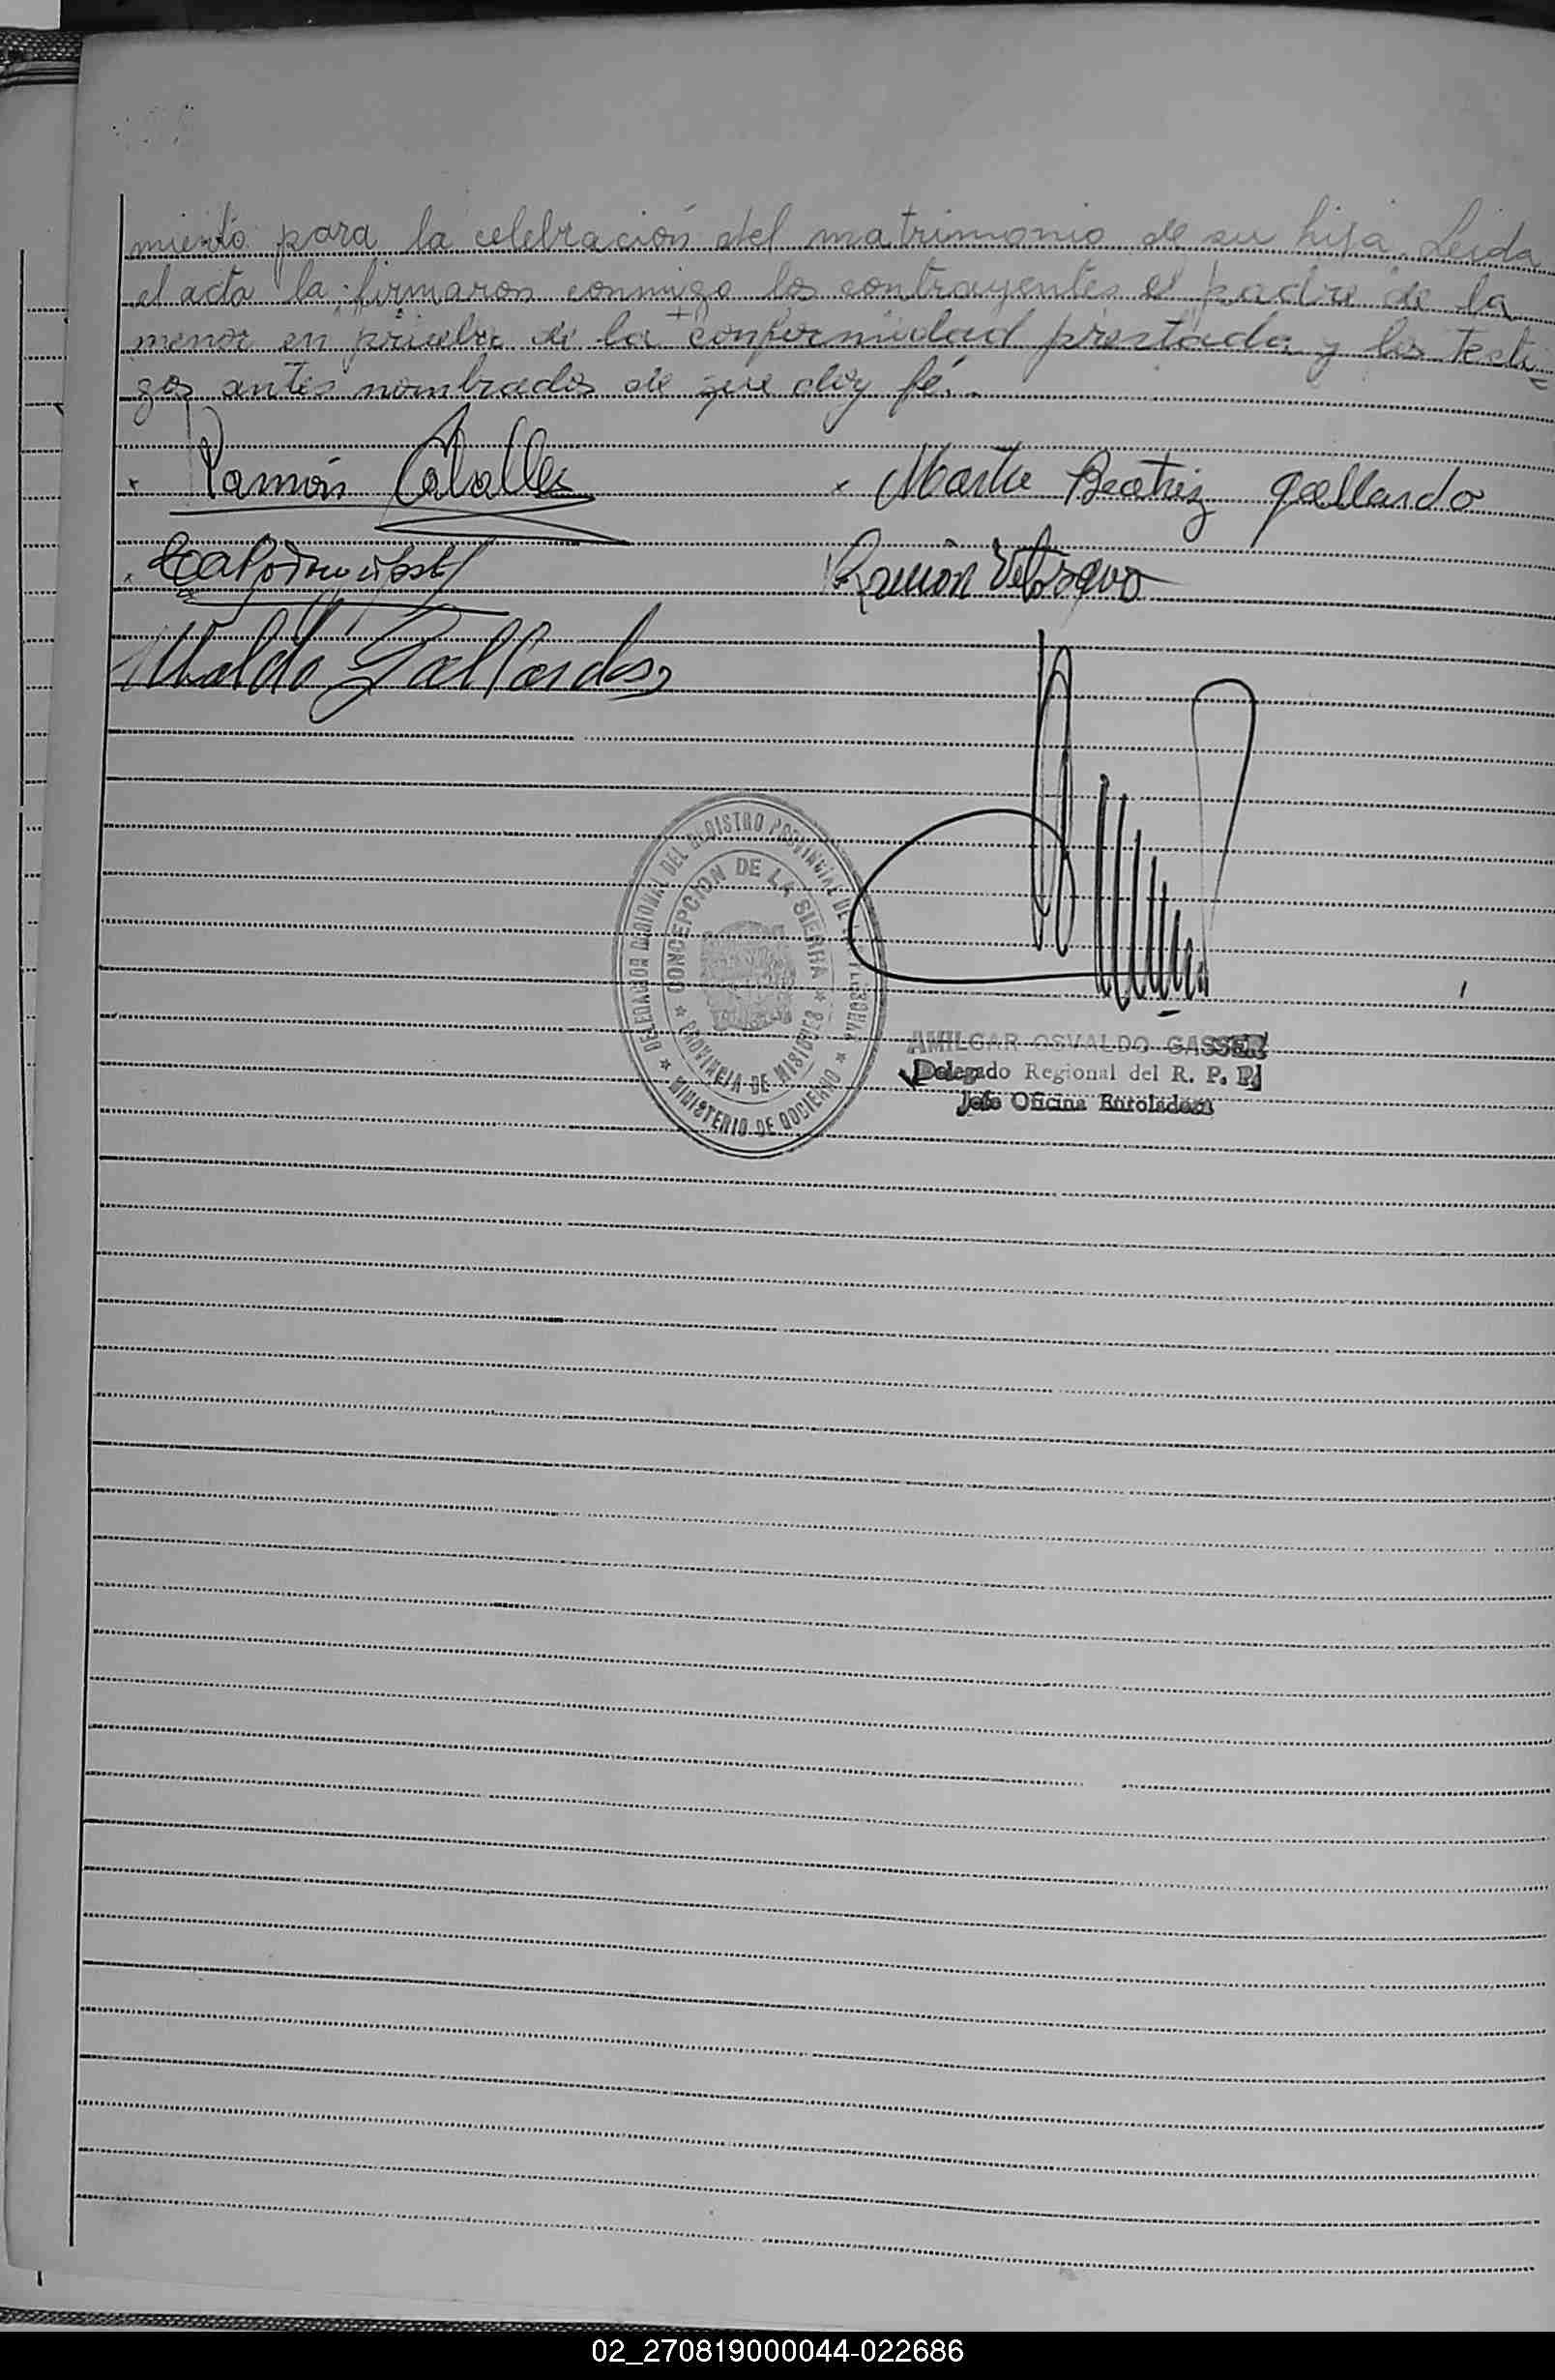 miento para la celebración del matrimonio de su hija. Leida
el acta la firmaron conmigo los contrayentes el padre de la
menor en prueba de la conformidad prestada y los testi
gos antes nombrados de que doy fé.
x Ramón x Marta Beatriz gallardo
Ramón
Gallardo
DELEGACION REGIONAL DEL REGISTRO PROVINCIAL DE LAS PERSONAS
CONCEPCION DE LA SIERRA
PROVINCIA DE MISIONES
MINISTERIO DE GOBIERNO
AMILCAR OSVALDO GASSER
Delegado Regional del R. P. P.
Jefe Oficina Enroladora
02_270819000044-022686